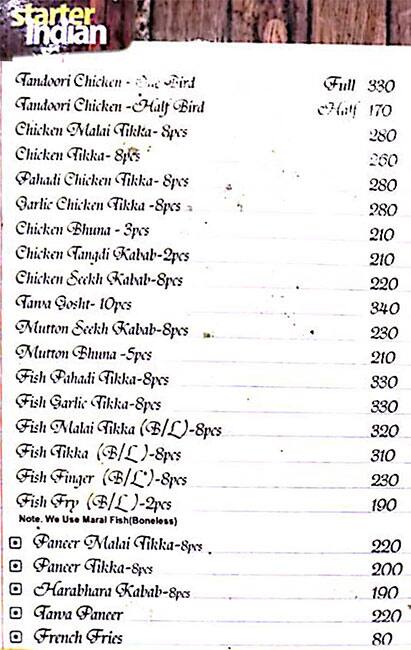 starter
Indian
Tandoori Chicken - One Bird Full 330
Tandoori Chicken -Half Bird Half 170
Chicken Malai Tikka- 8pcs 280
Chicken Tikka- 8pcs 260
Pahadi Chicken Tikka- 8pcs 280
Garlic Chicken Tikka -8pcs 280
Chicken Bhuna - 3pcs 210
Chicken Tangdi Kabab-2pcs 210
Chicken Seekh Kabab-8pcs 220
Tawa Gosht- 10pcs 340
Mutton Seekh Kabab-8pcs 230
Mutton Bhuna -5pcs 210
Fish Pahadi Tikka-8pcs 330
Fish Garlic Tikka-8pcs 330
Fish Malai Tikka (B/L)-8pcs 320
Fish Tikka (B/L)-8pcs 310
Fish Finger (B/L)-8pcs 230
Fish Fry (B/L)-2pcs 190
Note. We Use Maral Fish(Boneless)
Paneer Malai Tikka-8pcs 220
Paneer Tikka-8pcs 200
Harabhara Kabab-8pcs 190
Tawa Paneer 220
French Fries 80